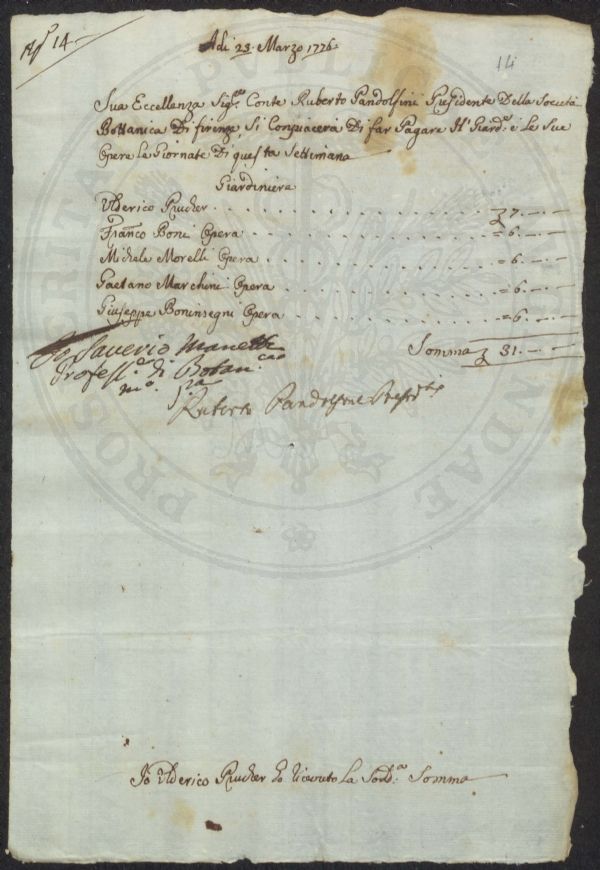 N.º 14
14
Adi 23. Marzo 1776.
Sua Eccellenza Sig.re Conte Ruberto Pandolfini Presidente Della Società
Bottanica Di firenze Si Conpiacerà Di far Pagare Il Giard.e e Le Sue
Opere Le Giornate Di questa Settimana
Giardiniere
Ulderico Prucher . . . . . . . . . . . . . . . . . . . £ 7. — —
Franco Boni Opera . . . . . . . . . . . . . . . . . = 6. — —
Michele Morelli Opera . . . . . . . . . . . . . . . = 6. — —
Gaetano Marchini Opera . . . . . . . . . . . . . . = 6. — —
Giuseppe Boninsegni Opera . . . . . . . . . . . . = 6. — —
Somma £ 31. — —
Io Saverio Manetti
Profess.e di Botan.ca
m.o p.a
Ruberto Pandolfini Presid.te
Io Ulderico Prucher ho riceuto La Sod.a Somma
PUBLICAE
PROSPERITATI